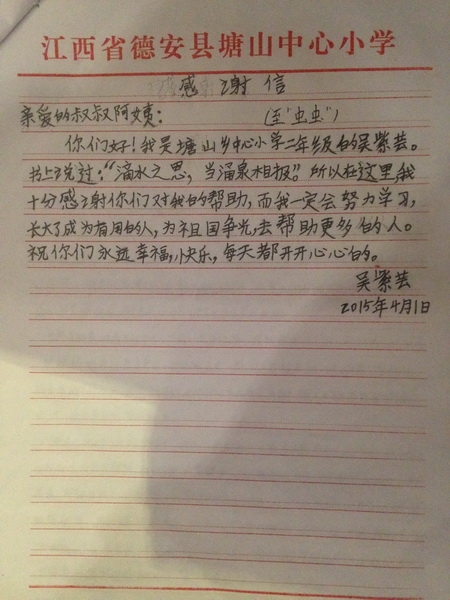 江西省德安县塘山中心小学
感谢信
亲爱的叔叔阿姨： （至"虫虫"）
你们好！我是塘山乡中心小学二年级的吴紫芸。
书上说过："滴水之恩，当涌泉相报。"所以在这里我
十分感谢你们对我的帮助，而我一定会努力学习，
长大了成为有用的人，为祖国争光，去帮助更多的人。
祝你们永远幸福，快乐，每天都开开心心的。
吴紫芸
2015年4月1日